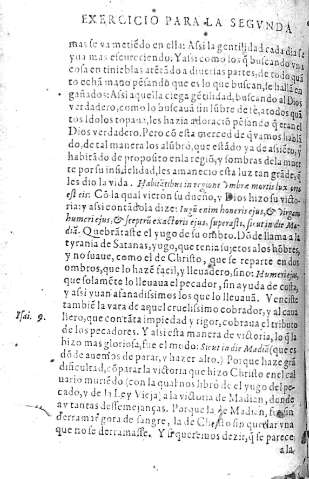 EXERCICIO PARA LA SEGVNDA
mas se va metiẽdo en ella: Assi la gentilidad cada dia se
yua mas escureciendo. Y assi como los q̃ buscando vna
cosa en tinieblas atẽtãdo a diuersas partes, de todo quã
to echã mano pẽsando que es lo que buscan, se hallã en
gañados: Assi aquella ciega gẽtilidad, buscando al Dios
verdadero, como lo buscauã sin lũbre de fè, a todos quã
tos idolos topauã, les hazia adoraciõ pẽsando q̃ era el
Dios verdadero. Pero cõ esta merced de q̃ vamos hablã
do, de tal manera los alũbrò, que estãdo ya de assiẽto, y
habitãdo de proposito en la regiõ, y sombras de la muer
te por su infidelidad, les amanecio esta luz tan grãde, q̃
les dio la vida. Habitãtibus in regione ombræ mortis lux orta
est eis. Cõ la qual vieron su dueño, y Dios hizo su victo-
ria: y assi contãdola dize: Iugũ enim honeris ejus, & virgam
humeri ejus, & sceptrũ exactoris ejus, superasti, sicut in die Ma
diã. Quebrãtaste el yugo de su ombro. Dõde llama a la
tyrania de Satanas, yugo, que tenia sujetos a los hõbres,
y no suaue, como el de Christo, que se reparte en dos
ombros, que lo hazẽ facil, y lleuadero, sino: Humeri ejus,
que solamẽte lo lleuaua el pecador, sin ayuda de costa,
y assi yuan afanadissimos los que lo lleuauã. Venciste
tambiẽ la vara de aquel cruelissimo cobrador, y al caua
Isai. 9.
llero, que con tãta impiedad y rigor, cobraua el tributo
de los pecadores. Y assi esta manera de victoria, lo q̃ la
hizo mas gloriosa, fue el modo: Sicut in die Madiã (que es
dõ de auemos de parar, y hazer alto.) Porque haze grã
dificultad, cõparar la victoria que hizo Christo en el cal
uario muriẽdo (con la qual nos librò de el yugo del pe-
cado, y de la Ley Vieja) a la victoria de Madian, donde
ay tantas dessemejanças. Porque la de Madian, fue sin
derramar gota de sangre, la de Christo sin quedar vna
que no se derramasse. Y si queremos dezir, q̃ se parece
a la